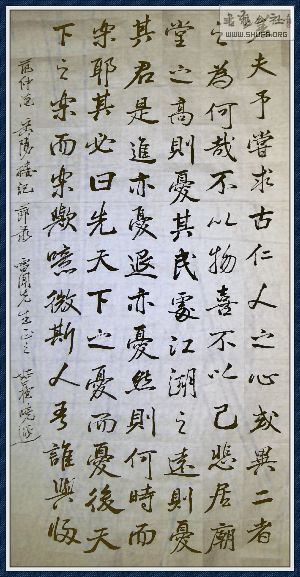 夫予嘗求古仁人之心或異二者
之為何哉不以物喜不以己悲居廟
堂之高則憂其民處江湖之遠則憂
其君是進亦憂退亦憂然則何時而
樂耶其必曰先天下之憂而憂後天
下之樂而樂歟噫微斯人吾誰與歸
范仲淹 岳陽樓記 先生正之
www.shufa.org